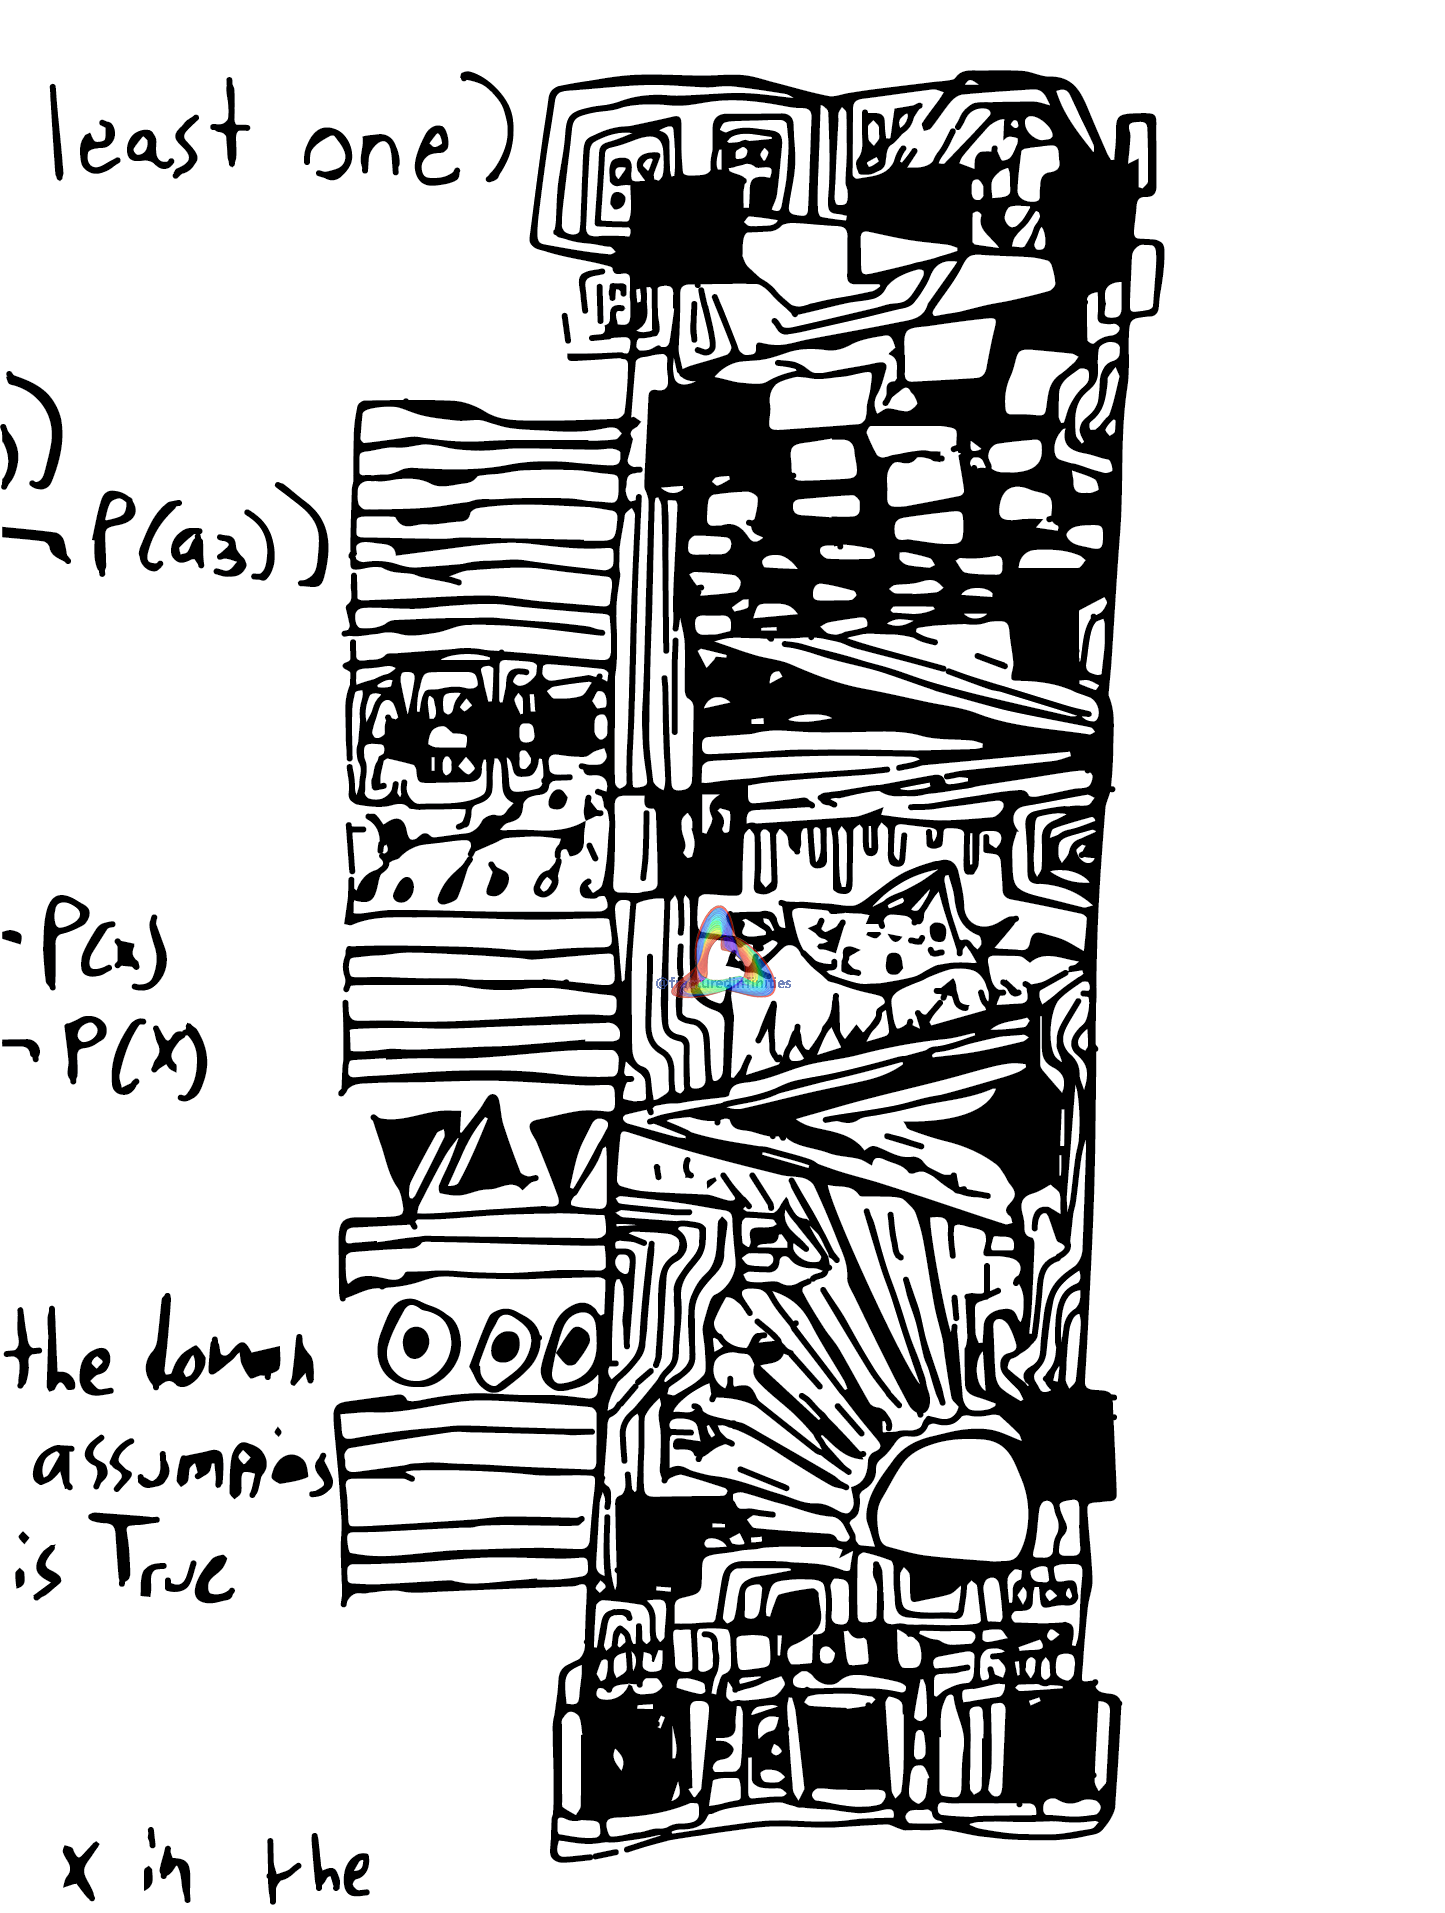 least one)
))
¬P(a3))
¬P(x)
¬P(x)
the
assumptions
is True
x in the
©fracturedinfinities